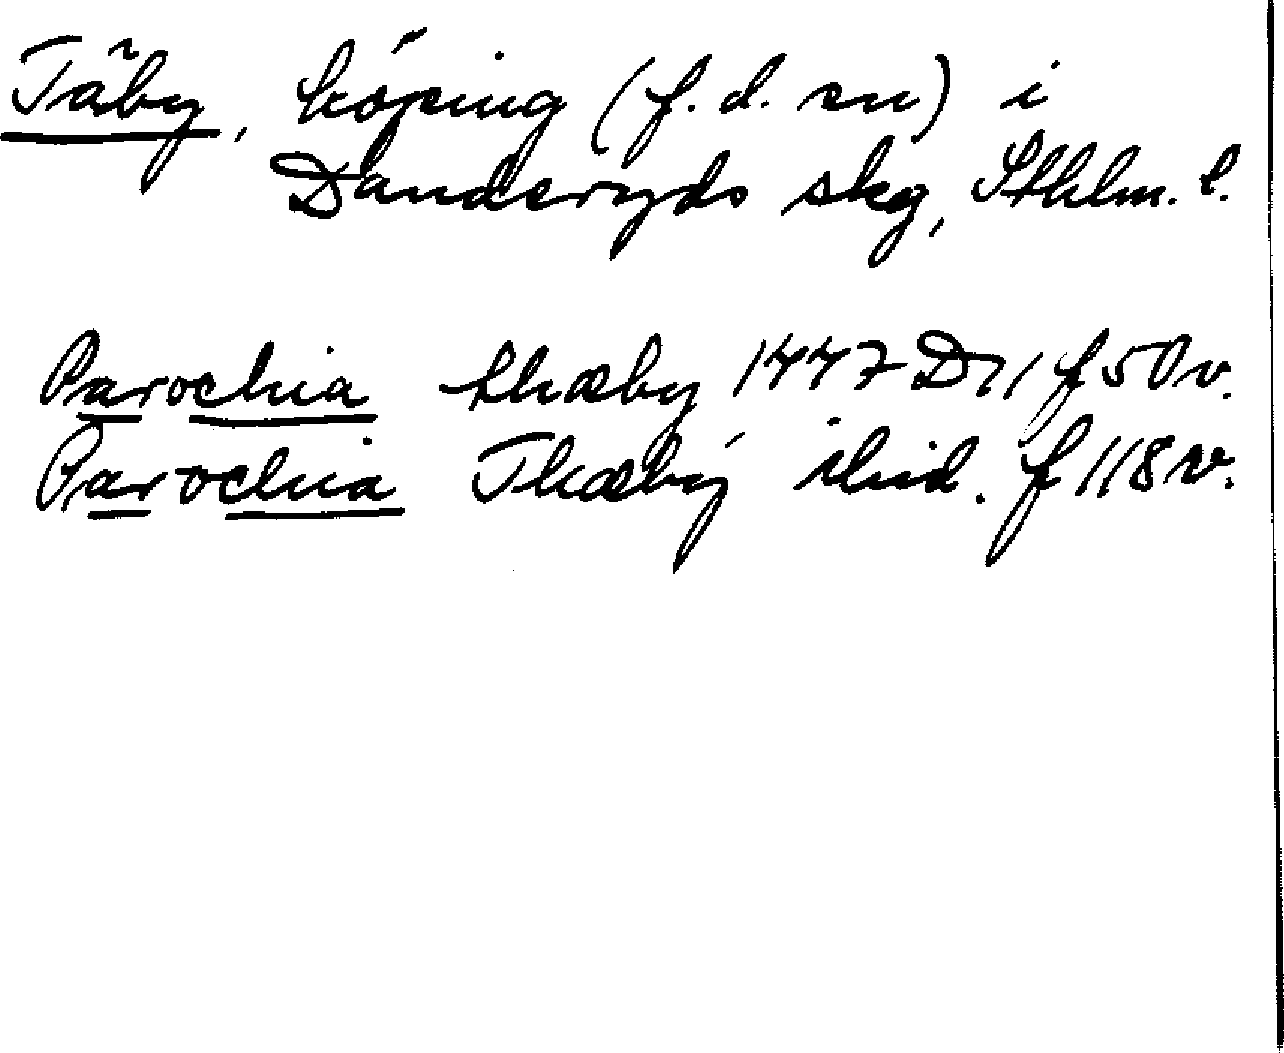 Täby, köping (f.d. sn) i
Danderyds skg, Sthlm. l.
Parochia thæby 1447 D11 f 50v.
Parochia Thæby ibid. f 118v.